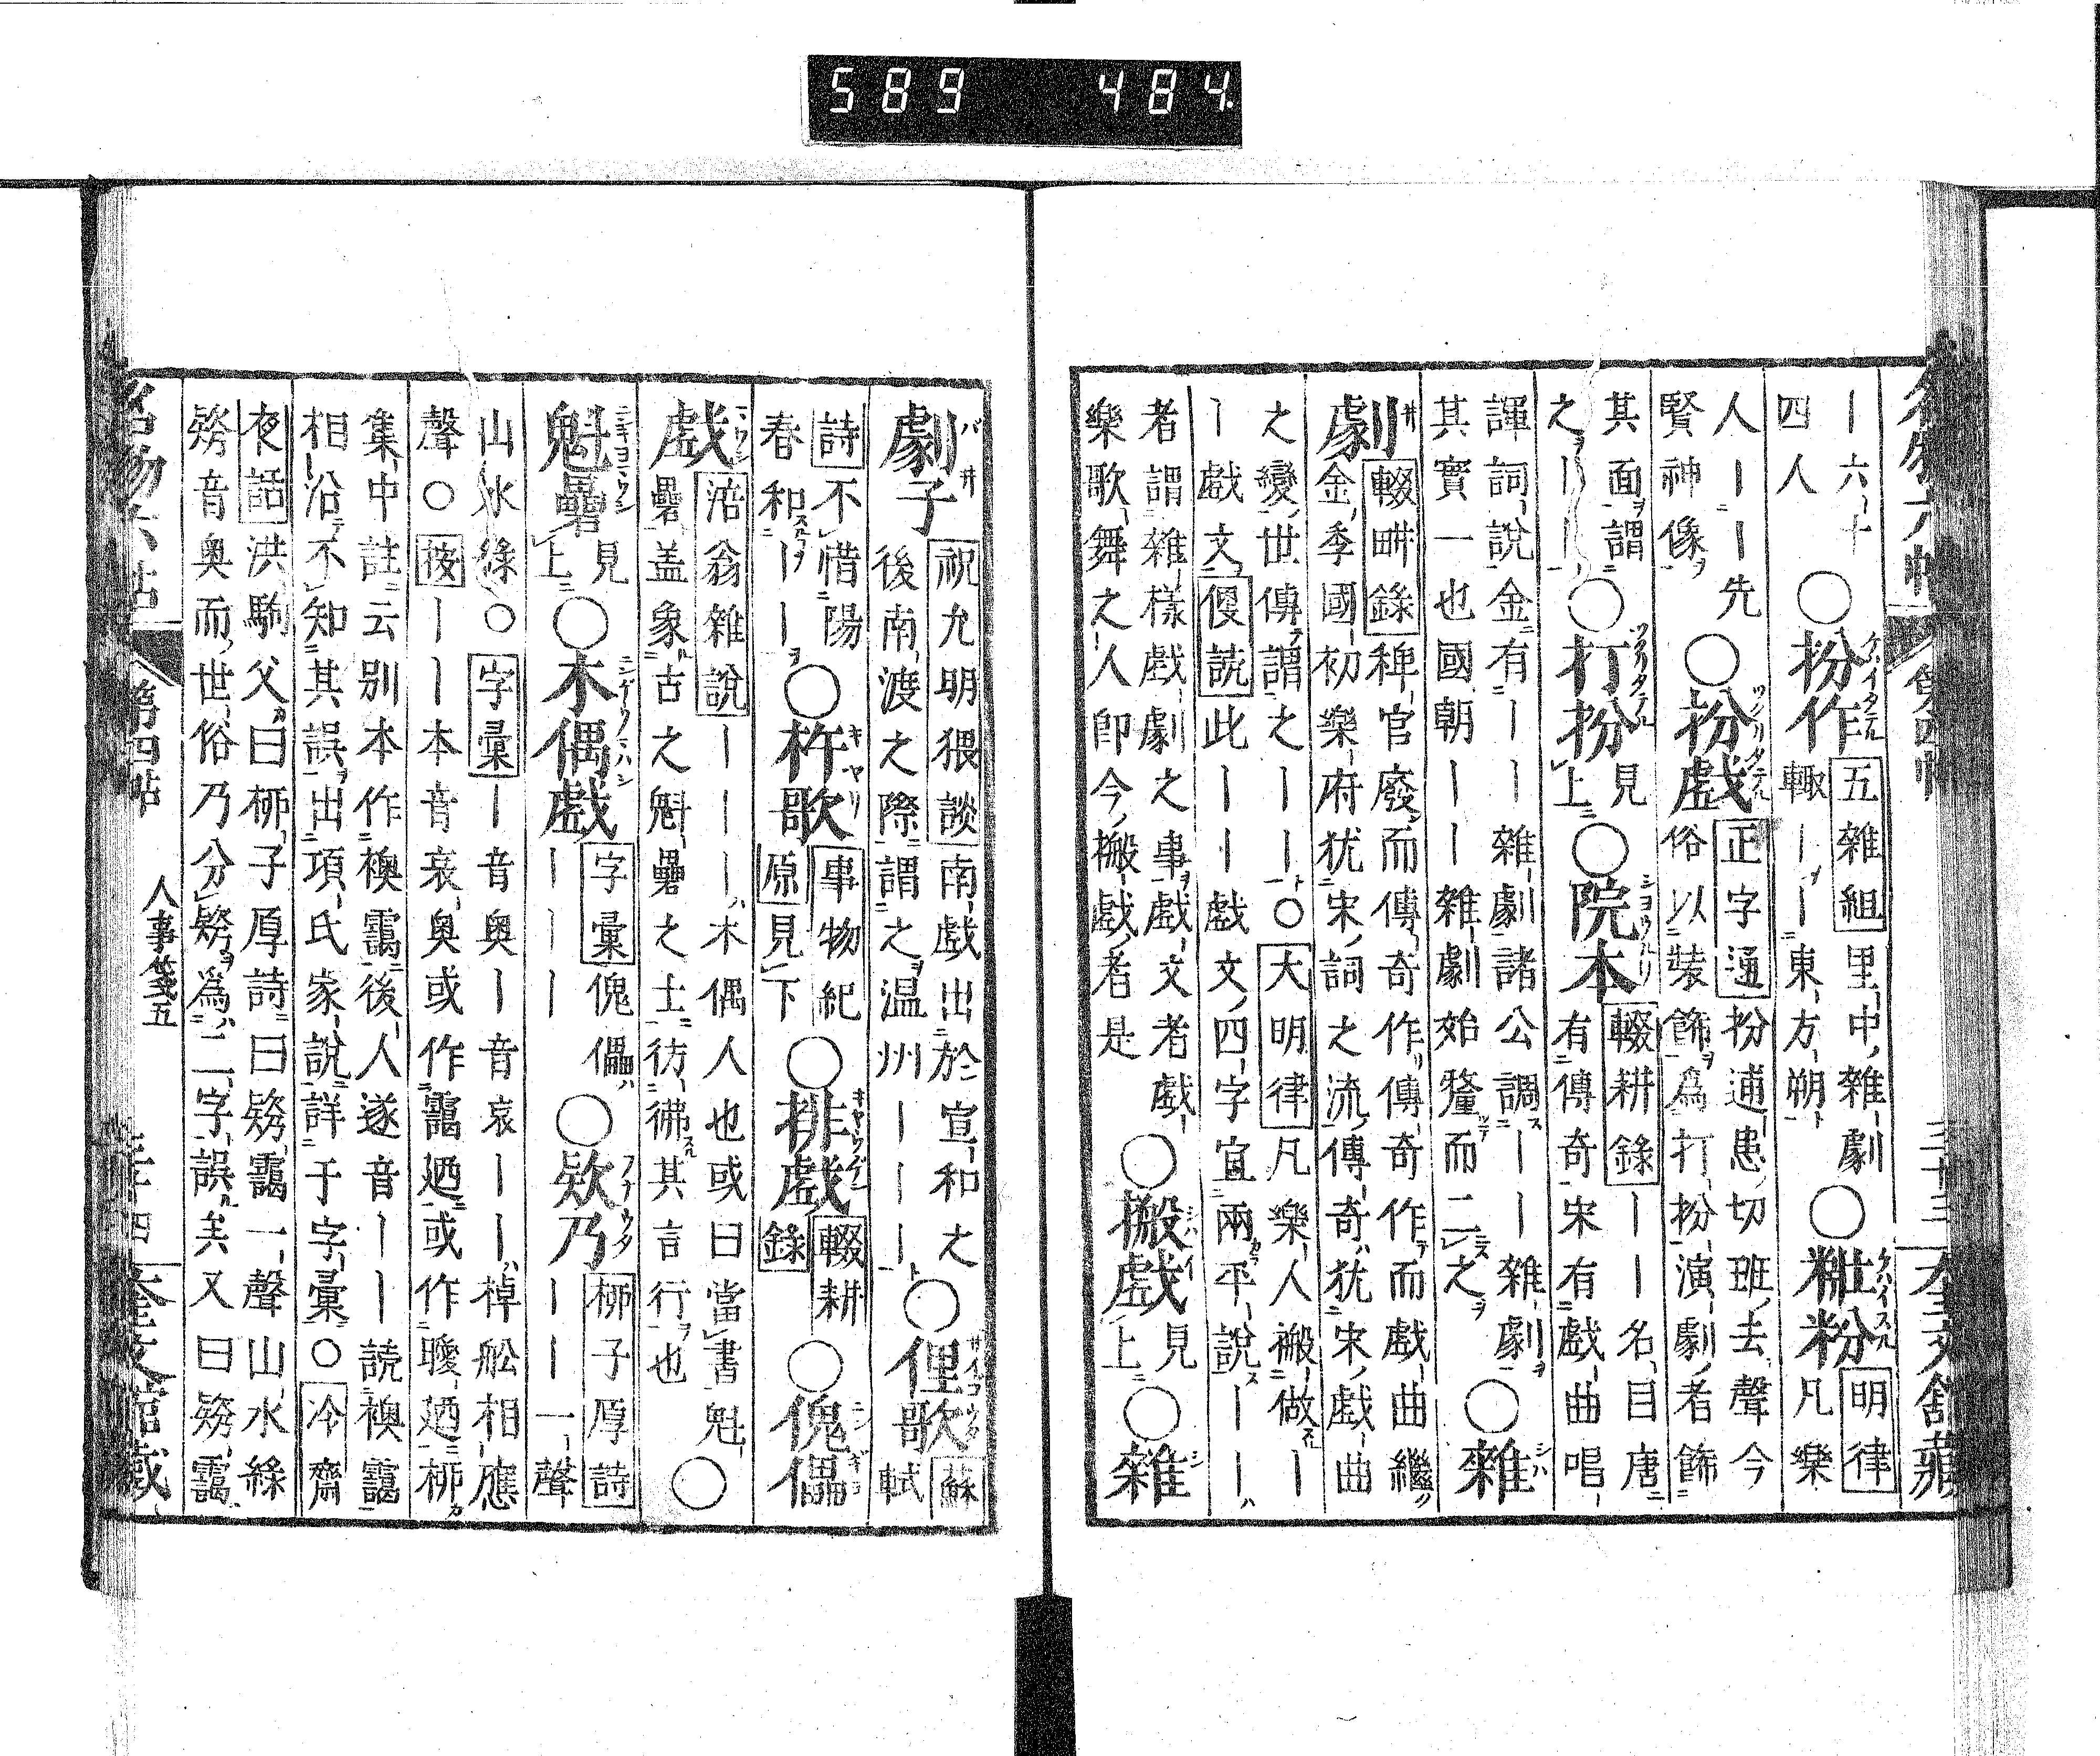 589 484
｜六十
四人
○扮作
五雜組里中雜劇
輙｜｜東方朔
○粧粉
明律
凡樂
人｜｜先
賢神像
○扮戲
正字通扮逋患切班去聲今
俗以裝飾爲打扮演劇者飾
其面謂
之｜｜
○打扮
見
上
○院本
輟耕錄｜｜名目唐
有傳奇宋有戲曲唱
諢詞說金有｜｜雜劇諸公調｜｜雜劇
其實一也國朝｜｜雜劇始釐而二之
○雜
劇
輟畊錄稗官廢而傳奇作傳奇作而戲曲繼
金季國初樂府犹宋詞之流傳奇犹宋戲曲
之變世傳謂之｜｜○大明律凡樂人搬做｜
｜戲文偃謊此｜｜戲文四字宜兩平說｜｜
者謂雜樣戲劇之事戲文者戲
樂歌舞之人卽今搬戲者是
○搬戲
見
上
○雜
劇子
祝允明猥談南戲出於宣和之
後南渡之際謂之温州｜｜
○俚歌
蘇
軾
詩不惜陽
春和｜｜
○杵歌
事物紀
原見下
○排戲
輟耕
錄
○傀儡
戲
涪翁雜說｜｜｜木偶人也或曰當書魁
礨盖象古之魁礨之士彷彿其言行也
○
魁礨
見
上
○木偶戲
字彙傀儡
｜｜｜
○欸乃
柳子厚詩
｜｜一聲
山水綠○字彙｜音奥｜音哀｜｜棹舩相應
聲○按｜｜本音哀奥或作靄廼或作曖廼柳
集中註云别本作襖靄後人遂音｜｜読襖靄
相沿不知其誤出項氏家說詳于字彙○冷齋
夜話洪駒父曰柳子厚詩曰欸靄一聲山水綠
欸音奥而世俗乃分欸爲二字誤矣又曰欸靄
名物六帖
第四帖
人事箋五
奎文館藏